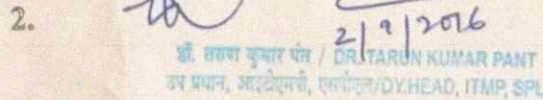 2.
2/9/2016
डॉ. तरुण कुमार पंत / DR. TARUN KUMAR PANT
उप प्रधान, आईटीएमपी, एसपीएल/DY.HEAD, ITMP, SPL